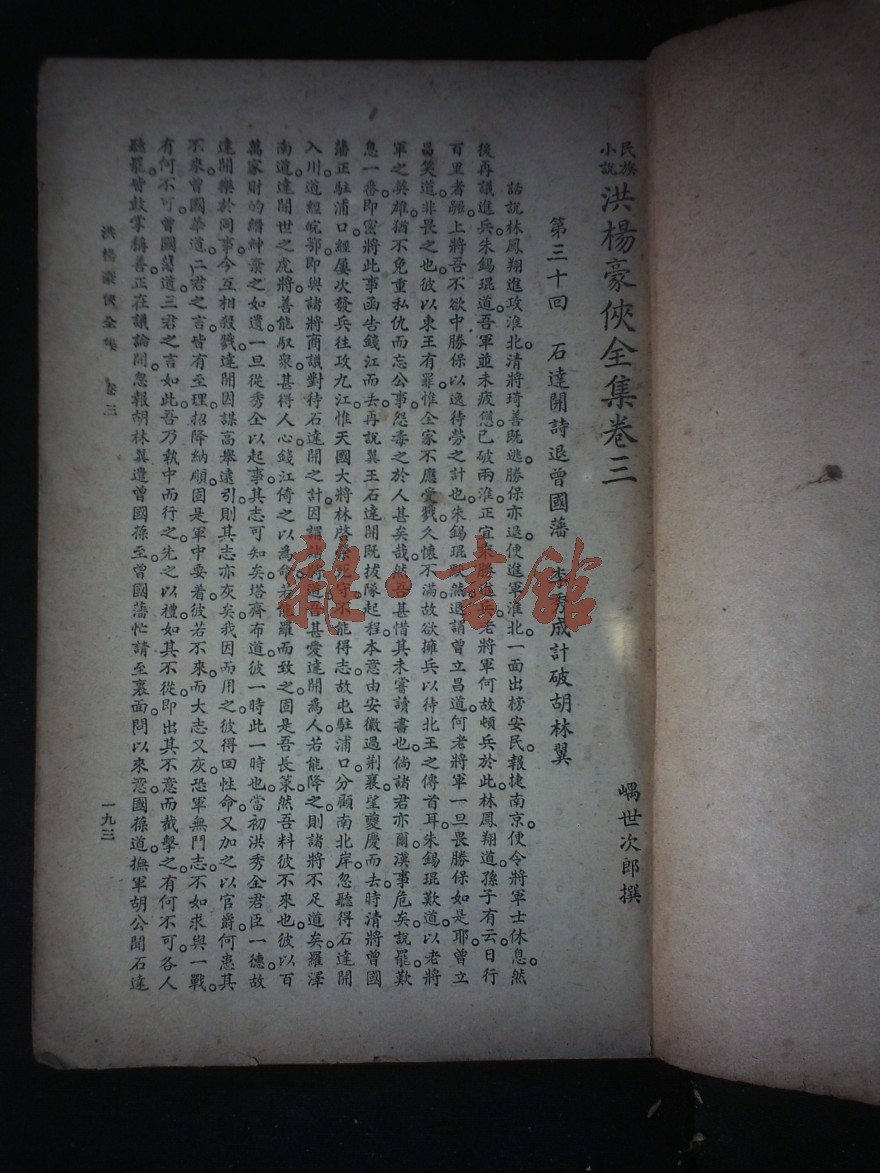 民族小説 洪楊豪俠全集卷三
嵎世次郎撰
第三十回 石達開詩退曾國藩 李秀成計破胡林翼
話說林鳳翔進攻淮北。清將琦善既逃。勝保亦退。便進軍淮北。一面出榜安民。報捷南京。便令將軍士休息。然
後再議進兵。朱錫琨道。吾軍並未疲憊。已破兩淮。正宜乘勝進兵。老將軍何故頓兵於此。林鳳翔道。孫子有云。日行
百里者。蹶上將。吾不欲中勝保以逸待勞之計也。朱錫琨默然。退謂曾立昌道。何老將軍一旦畏勝保如是耶。曾立
昌笑道。非畏之也。彼以東王有罪。惟全家不應受戮。久懷不滿。故欲擁兵以待北王之傳首耳。朱錫琨歎道。以老將
軍之英雄。猶不免重私仇而忘公事。怨毒之於人甚矣哉。然吾甚惜其未嘗讀書也。倘諸君亦爾。漢事危矣。說罷歎
息一番。即密將此事函告錢江而去。再說翼王石達開既拔隊起程。本意由安徽過荆襄。望夔慶而去。時清將曾國
藩正駐浦口。經屢次發兵往攻九江。惟天國大將林啟榮死守。不能得志。故屯駐浦口。分顧南北岸。忽聽得石達開
入川。道經皖鄂。即與諸將商議對待石達開之計。因謂諸將道。吾甚愛達開為人。若能降之。則諸將不足道矣。羅澤
南道。達開世之虎將。善能馭衆。甚得人心。錢江倚之以為命。若能羅而致之。固是吾長策。然吾料彼不來也。彼以百
萬家財的縉紳。棄之如遺。一旦從秀全以起事。其志可知矣。塔齊布道。彼一時此一時也。當初洪秀全君臣一德。故
達開樂於同事。今互相殺戮。達開因謀高舉遠引。則其志亦灰矣。我因而用之。彼得回性命。又加之以官爵。何患其
不來。曾國華道。二君之言。皆有至理。招降納順。固是軍中要着。彼若不來。而大志又灰。恐軍無鬥志。不如求與一戰。
有何不可。曾國藩道。三君之言如此。吾乃執中而行之。先之以禮。如其不從。即出其不意而截擊之。有何不可。各人
聽罷。皆鼓掌稱善。正在議論間。忽報胡林翼遣曾國葆至。曾國藩忙請至裏面。問以來意。國葆道。撫軍胡公聞石達
洪楊豪俠全集 卷三
一九三
雜·書館